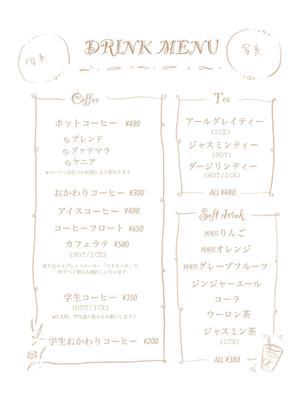 写真
DRINK MENU
写真
Coffee
ホットコーヒー ¥480
ブレンド
グァテマラ
ケニア
おかわりコーヒー ¥300
アイスコーヒー ¥480
コーヒーフロート ¥650
カフェラテ ¥580
(HOT/ICE)
学生コーヒー ¥350
(HOT/ICE)
学生おかわりコーヒー ¥200
Tea
アールグレイティー
(ICE)
ジャスミンティー
(HOT)
ダージリンティー
(HOT/ICE)
ALL ¥480
Soft drink
100%りんご
100%オレンジ
100%グレープフルーツ
ジンジャーエール
コーラ
ウーロン茶
ジャスミン茶
(ICE)
ALL ¥380